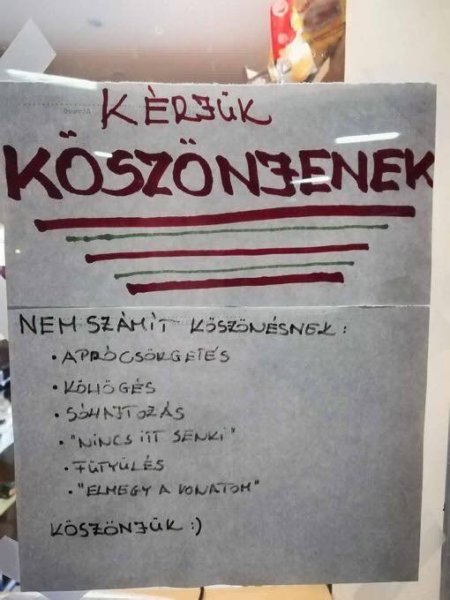 KÉRJÜK
KÖSZÖNJENEK
NEM SZÁMÍT KÖSZÖNÉSNEK:
• APRÓCSÖRGETÉS
• KÖHÖGÉS
• SÓHAJTOZÁS
• "NINCS ITT SENKI"
• FÜTYÜLÉS
• "ELMEGY A VONATOM"
KÖSZÖNJÜK :)